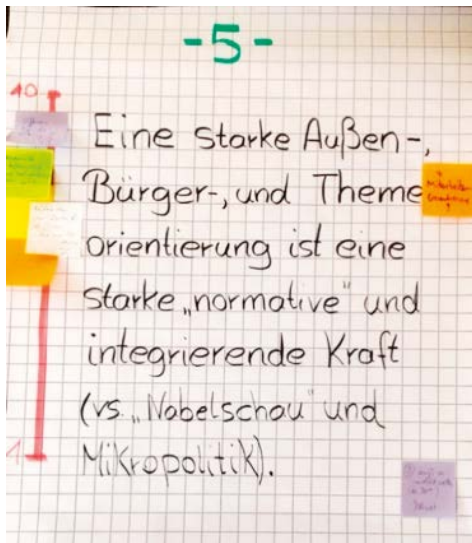 -5-
10
Eine starke Außen-,
Bürger-, und Theme
orientierung ist eine
starke „normative" und
integrierende Kraft
(vs. „Nabelschau" und
Mikropolitik).
1